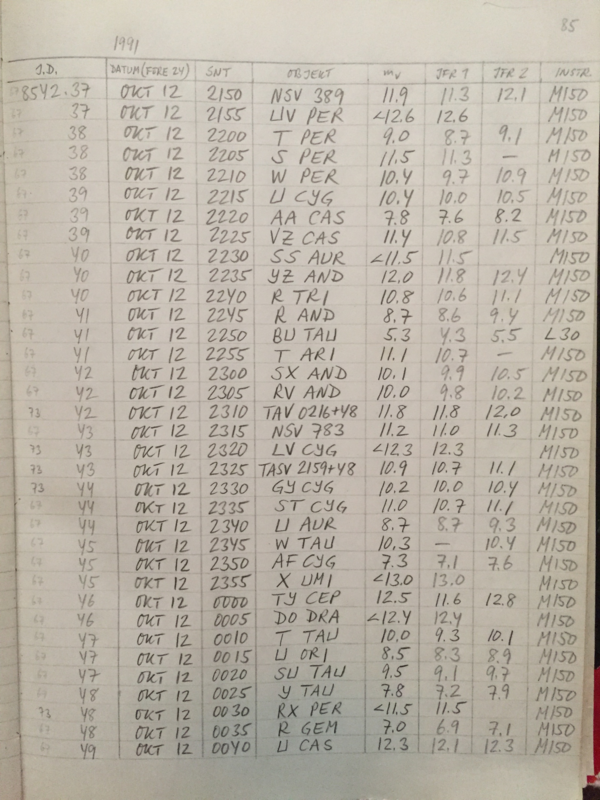 85
1991
J.D. DATUM (FÖRE 24) SNT OBJEKT mv JFR 1 JFR 2 INSTR
8542.37 OKT 12 2150 NSV 389 11.9 11.3 12.1 M150
67 37 OKT 12 2155 UV PER <12.6 12.6 M150
67 38 OKT 12 2200 T PER 9.0 8.7 9.1 M150
67 38 OKT 12 2205 S PER 11.5 11.3 — M150
67 38 OKT 12 2210 W PER 10.4 9.7 10.9 M150
67 39 OKT 12 2215 U CYG 10.4 10.0 10.5 M150
67 39 OKT 12 2220 AA CAS 7.8 7.6 8.2 M150
67 39 OKT 12 2225 VZ CAS 11.4 10.8 11.5 M150
67 40 OKT 12 2230 SS AUR <11.5 11.5 M150
67 40 OKT 12 2235 YZ AND 12.0 11.8 12.4 M150
67 40 OKT 12 2240 R TRI 10.8 10.6 11.1 M150
67 41 OKT 12 2245 R AND 8.7 8.6 9.4 M150
67 41 OKT 12 2250 BU TAU 5.3 4.3 5.5 L30
67 41 OKT 12 2255 T ARI 11.1 10.7 — M150
67 42 OKT 12 2300 SX AND 10.1 9.9 10.5 M150
67 42 OKT 12 2305 RV AND 10.0 9.8 10.2 M150
73 42 OKT 12 2310 TAV 0216+48 11.8 11.8 12.0 M150
67 43 OKT 12 2315 NSV 783 11.2 11.0 11.3 M150
73 43 OKT 12 2320 LV CYG <12.3 12.3 M150
73 43 OKT 12 2325 TASV 2159+48 10.9 10.7 11.1 M150
73 44 OKT 12 2330 GY CYG 10.2 10.0 10.4 M150
67 44 OKT 12 2335 ST CYG 11.0 10.7 11.1 M150
67 44 OKT 12 2340 U AUR 8.7 8.7 9.3 M150
67 45 OKT 12 2345 W TAU 10.3 — 10.4 M150
67 45 OKT 12 2350 AF CYG 7.3 7.1 7.6 M150
67 45 OKT 12 2355 X UMI <13.0 13.0 M150
67 46 OKT 12 0000 TY CEP 12.5 11.6 12.8 M150
67 46 OKT 12 0005 DO DRA <12.4 12.4 M150
67 47 OKT 12 0010 T TAU 10.0 9.3 10.1 M150
67 47 OKT 12 0015 U ORI 8.5 8.3 8.9 M150
67 47 OKT 12 0020 SU TAU 9.5 9.1 9.7 M150
67 48 OKT 12 0025 Y TAU 7.8 7.2 7.9 M150
73 48 OKT 12 0030 RX PER <11.5 11.5 M150
67 48 OKT 12 0035 R GEM 7.0 6.9 7.1 M150
67 49 OKT 12 0040 U CAS 12.3 12.1 12.3 M150